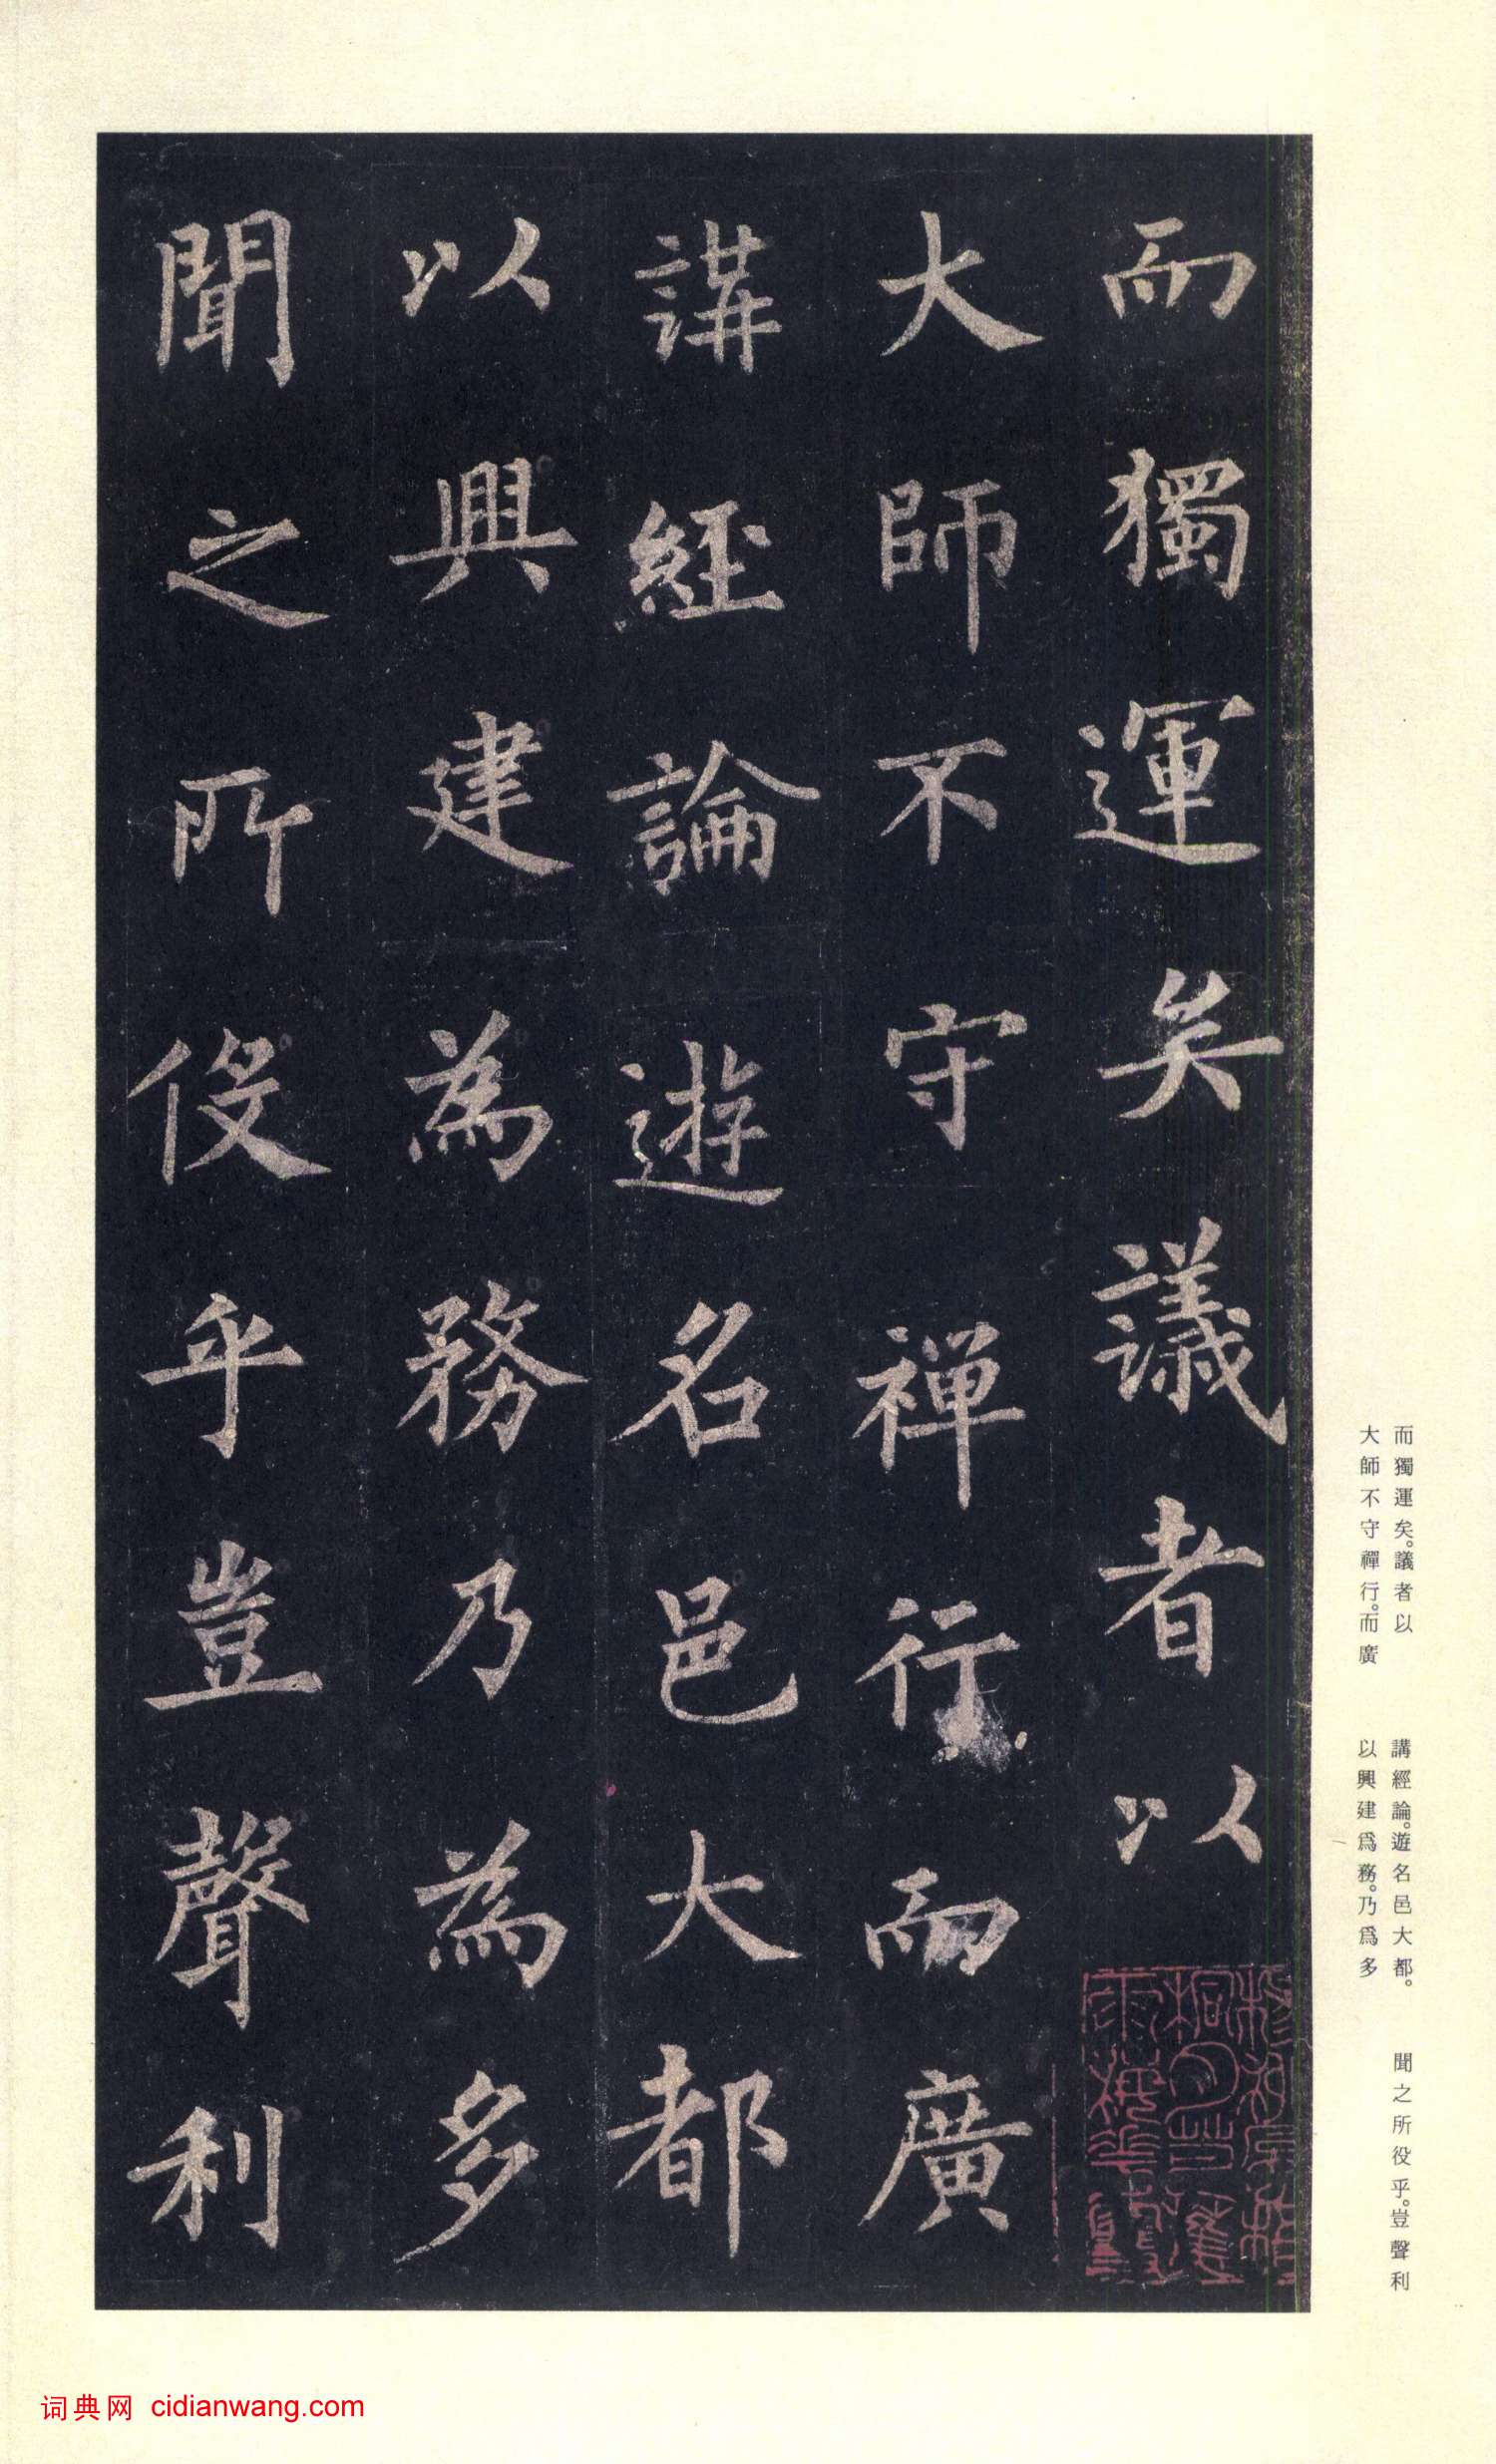 而獨運矣議者以
大師不守禪行而廣
講經論遊名邑大都
以興建為務乃為多
聞之所役乎豈聲利
而獨運矣。議者以
大師不守禪行。而廣
講經論。遊名邑大都。
以興建爲務。乃爲多
聞之所役乎。豈聲利
词典网 cidianwang.com